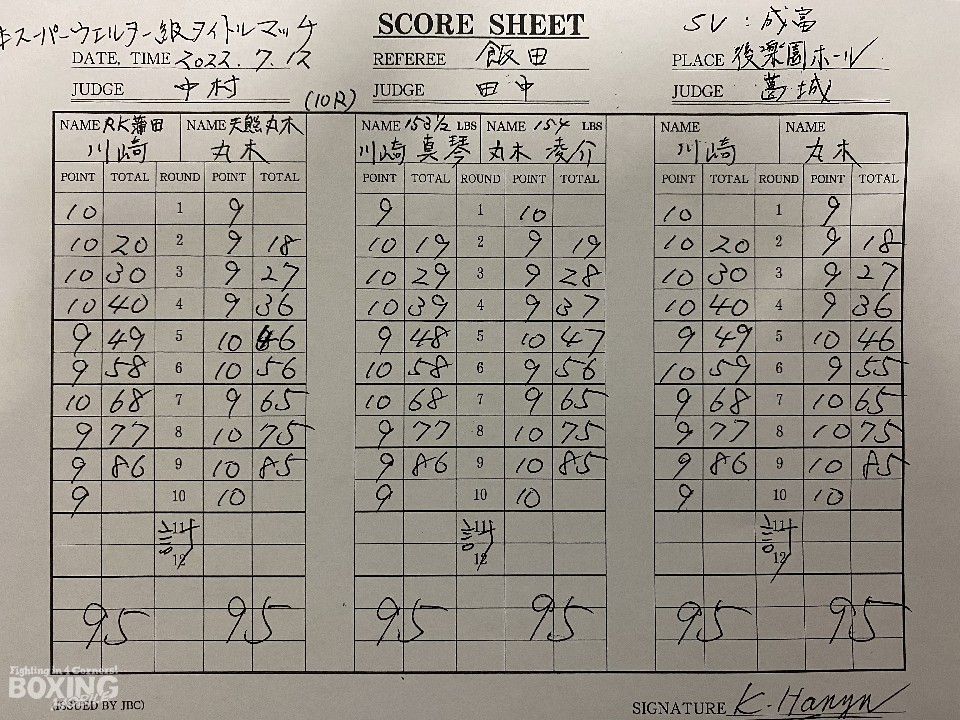 SCORE SHEET
スーパーウェルター級タイトルマッチ
SV : 成富
DATE, TIME 2022. 7. 12 REFEREE 飯田 PLACE 後楽園ホール
JUDGE 中村 (10R) JUDGE 田中 JUDGE 葛城
NAME RK蒲田 NAME 天熊丸木 NAME 153 1/2 LBS NAME 154 LBS NAME NAME
川崎 丸木 川崎 真琴 丸木 凌介 川崎 丸木
POINT TOTAL ROUND POINT TOTAL POINT TOTAL ROUND POINT TOTAL POINT TOTAL ROUND POINT TOTAL
10 1 9 9 1 10 10 1 9
10 20 2 9 18 10 19 2 9 19 10 20 2 9 18
10 30 3 9 27 10 29 3 9 28 10 30 3 9 27
10 40 4 9 36 10 39 4 9 37 10 40 4 9 36
9 49 5 10 46 9 48 5 10 47 9 49 5 10 46
9 58 6 10 56 10 58 6 9 56 10 59 6 9 55
10 68 7 9 65 10 68 7 9 65 9 68 7 10 65
9 77 8 10 75 9 77 8 10 75 9 77 8 10 75
9 86 9 10 85 9 86 9 10 85 9 86 9 10 85
9 10 10 9 10 10 9 10 10
計 11 計 11 計 11
12 12 12
95 95 95 95 95 95
Fighting in 4 Corners!
BOXING
MOBILE
(ISSUED BY JBC) SIGNATURE